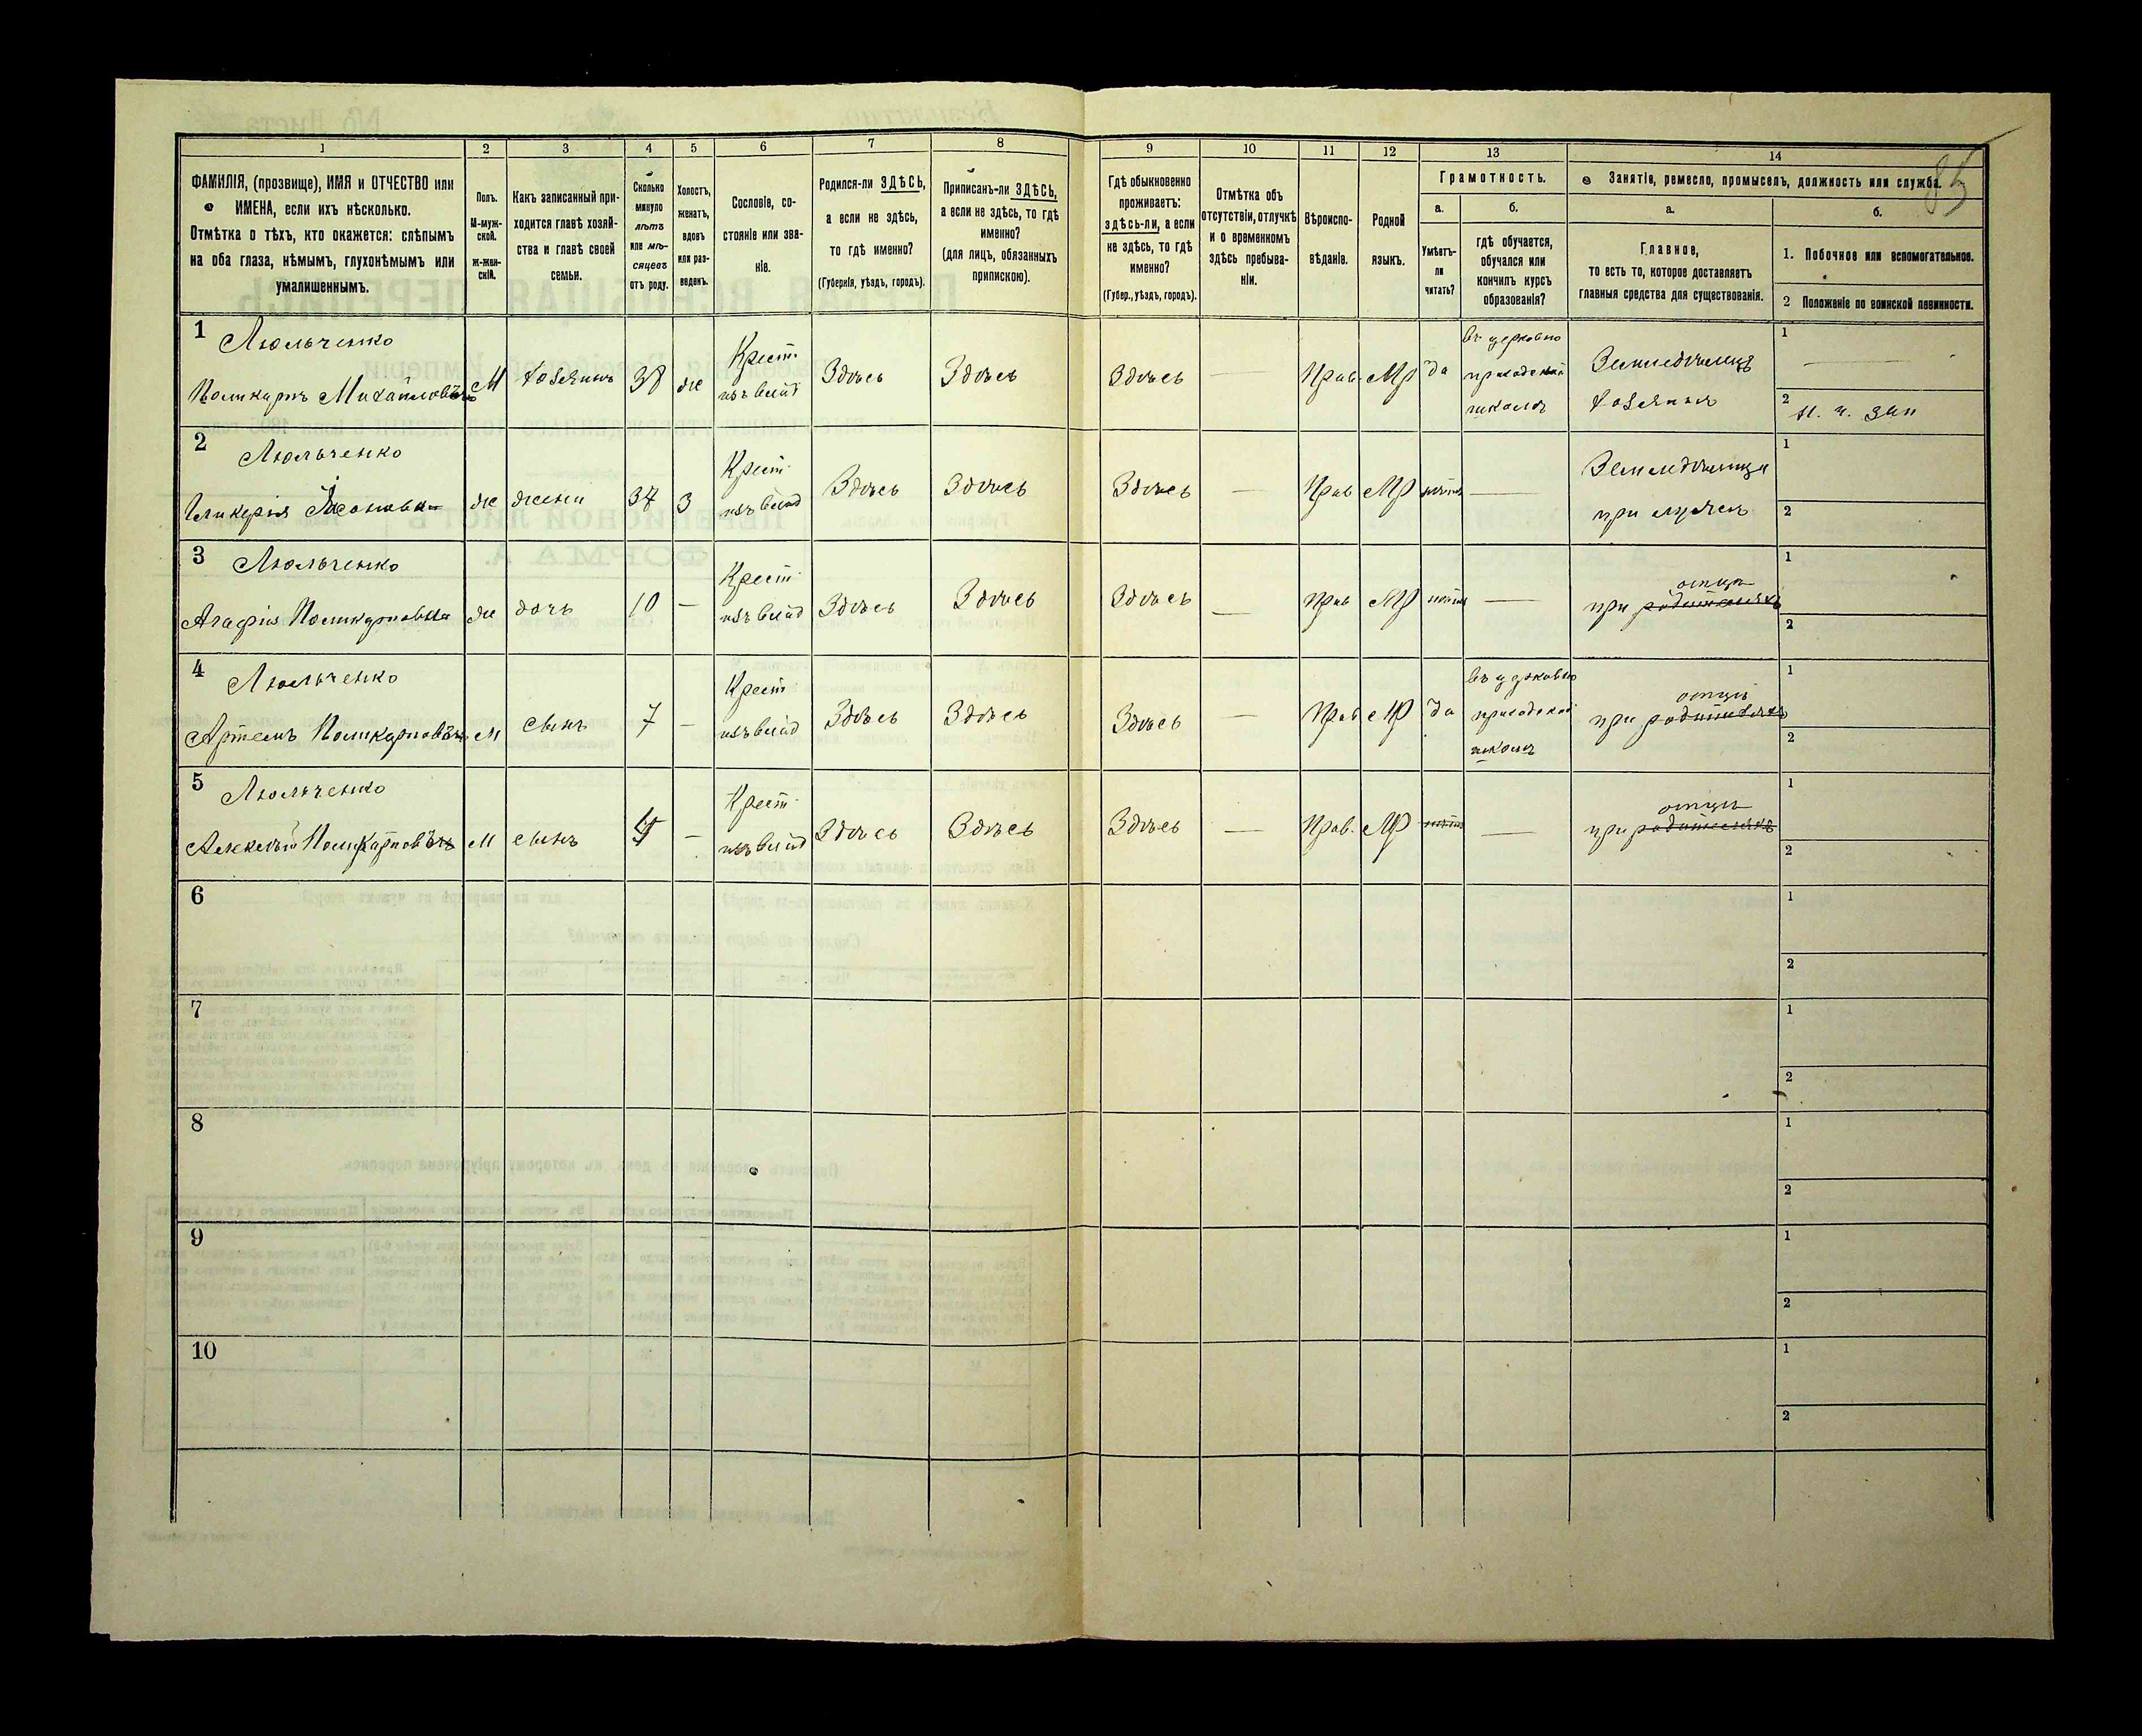 85
1 2 3 4 5 6 7 8 9 10 11 12 13 14
ФАМИЛІЯ, (прозвище), ИМЯ и ОТЧЕСТВО или
ИМЕНА, если ихъ нѣсколько.
Отмѣтка о тѣхъ, кто окажется: слѣпымъ
на оба глаза, нѣмымъ, глухонѣмымъ или
умалишеннымъ.
Полъ.
М-муж-
ской.
Ж-жен-
скій.
Какъ записанный при-
ходится главѣ хозяй-
ства и главѣ своей
семьи.
Сколько
минуло
лѣтъ
или мѣ-
сяцевъ
отъ роду.
Холостъ,
женатъ,
вдовъ
или раз-
веденъ.
Сословіе, со-
стояніе или зва-
ніе.
Родился-ли ЗДѢСЬ,
а если не здѣсь,
то гдѣ именно?
(Губернія, уѣздъ, городъ).
Приписанъ-ли ЗДѢСЬ,
а если не здѣсь, то гдѣ
именно?
(для лицъ, обязанныхъ
припискою).
Гдѣ обыкновенно
проживаетъ:
здѣсь-ли, а если
не здѣсь, то гдѣ
именно?
(Губер., уѣздъ, городъ).
Отмѣтка объ
отсутствіи, отлучкѣ
и о временномъ
здѣсь пребыва-
ніи.
Вѣроиспо-
вѣданіе.
Родной
языкъ.
Грамотность.
а.
Умѣетъ-
ли
читать?
б.
гдѣ обучается,
обучался или
кончилъ курсъ
образованія?
Занятіе, ремесло, промыселъ, должность или служба.
а.
Главное,
то есть то, которое доставляетъ
главныя средства для существованія.
б.
1. Побочное или вспомогательное.
2 Положеніе по воинской повинности.
1 Люльченко
Поликарпъ Михайловичъ М хозяинъ 38 ж Крест. изъ влад Здѣсь Здѣсь Здѣсь — Прав. Мр да въ церковно приходской школѣ Земледѣлецъ хозяинъ 1 — 2 н. ч. зап
2 Люльченко
Гликерія ж жена 37 З Крест. изъ влад Здѣсь Здѣсь Здѣсь — Прав Мр нѣтъ — Земледѣлица при мужѣ 1 2
3 Люльченко
Агафія Поликарповна ж дочь 10 — Крест. изъ влад Здѣсь Здѣсь Здѣсь — Прав Мр нѣтъ — при родителяхъ отцѣ 1 2
4 Люльченко
Артемъ Поликарповичъ М сынъ 7 — Крест. изъ влад Здѣсь Здѣсь Здѣсь — Прав Мр да въ церковно приходской школѣ при родителяхъ отцѣ 1 2
5 Люльченко
Алексѣй Поликарповичъ М сынъ — Крест. изъ влад Здѣсь Здѣсь Здѣсь — Прав. Мр нѣтъ — при родителяхъ отцѣ 1 2
6 1 2
7 1 2
8 1 2
9 1 2
10 1 2